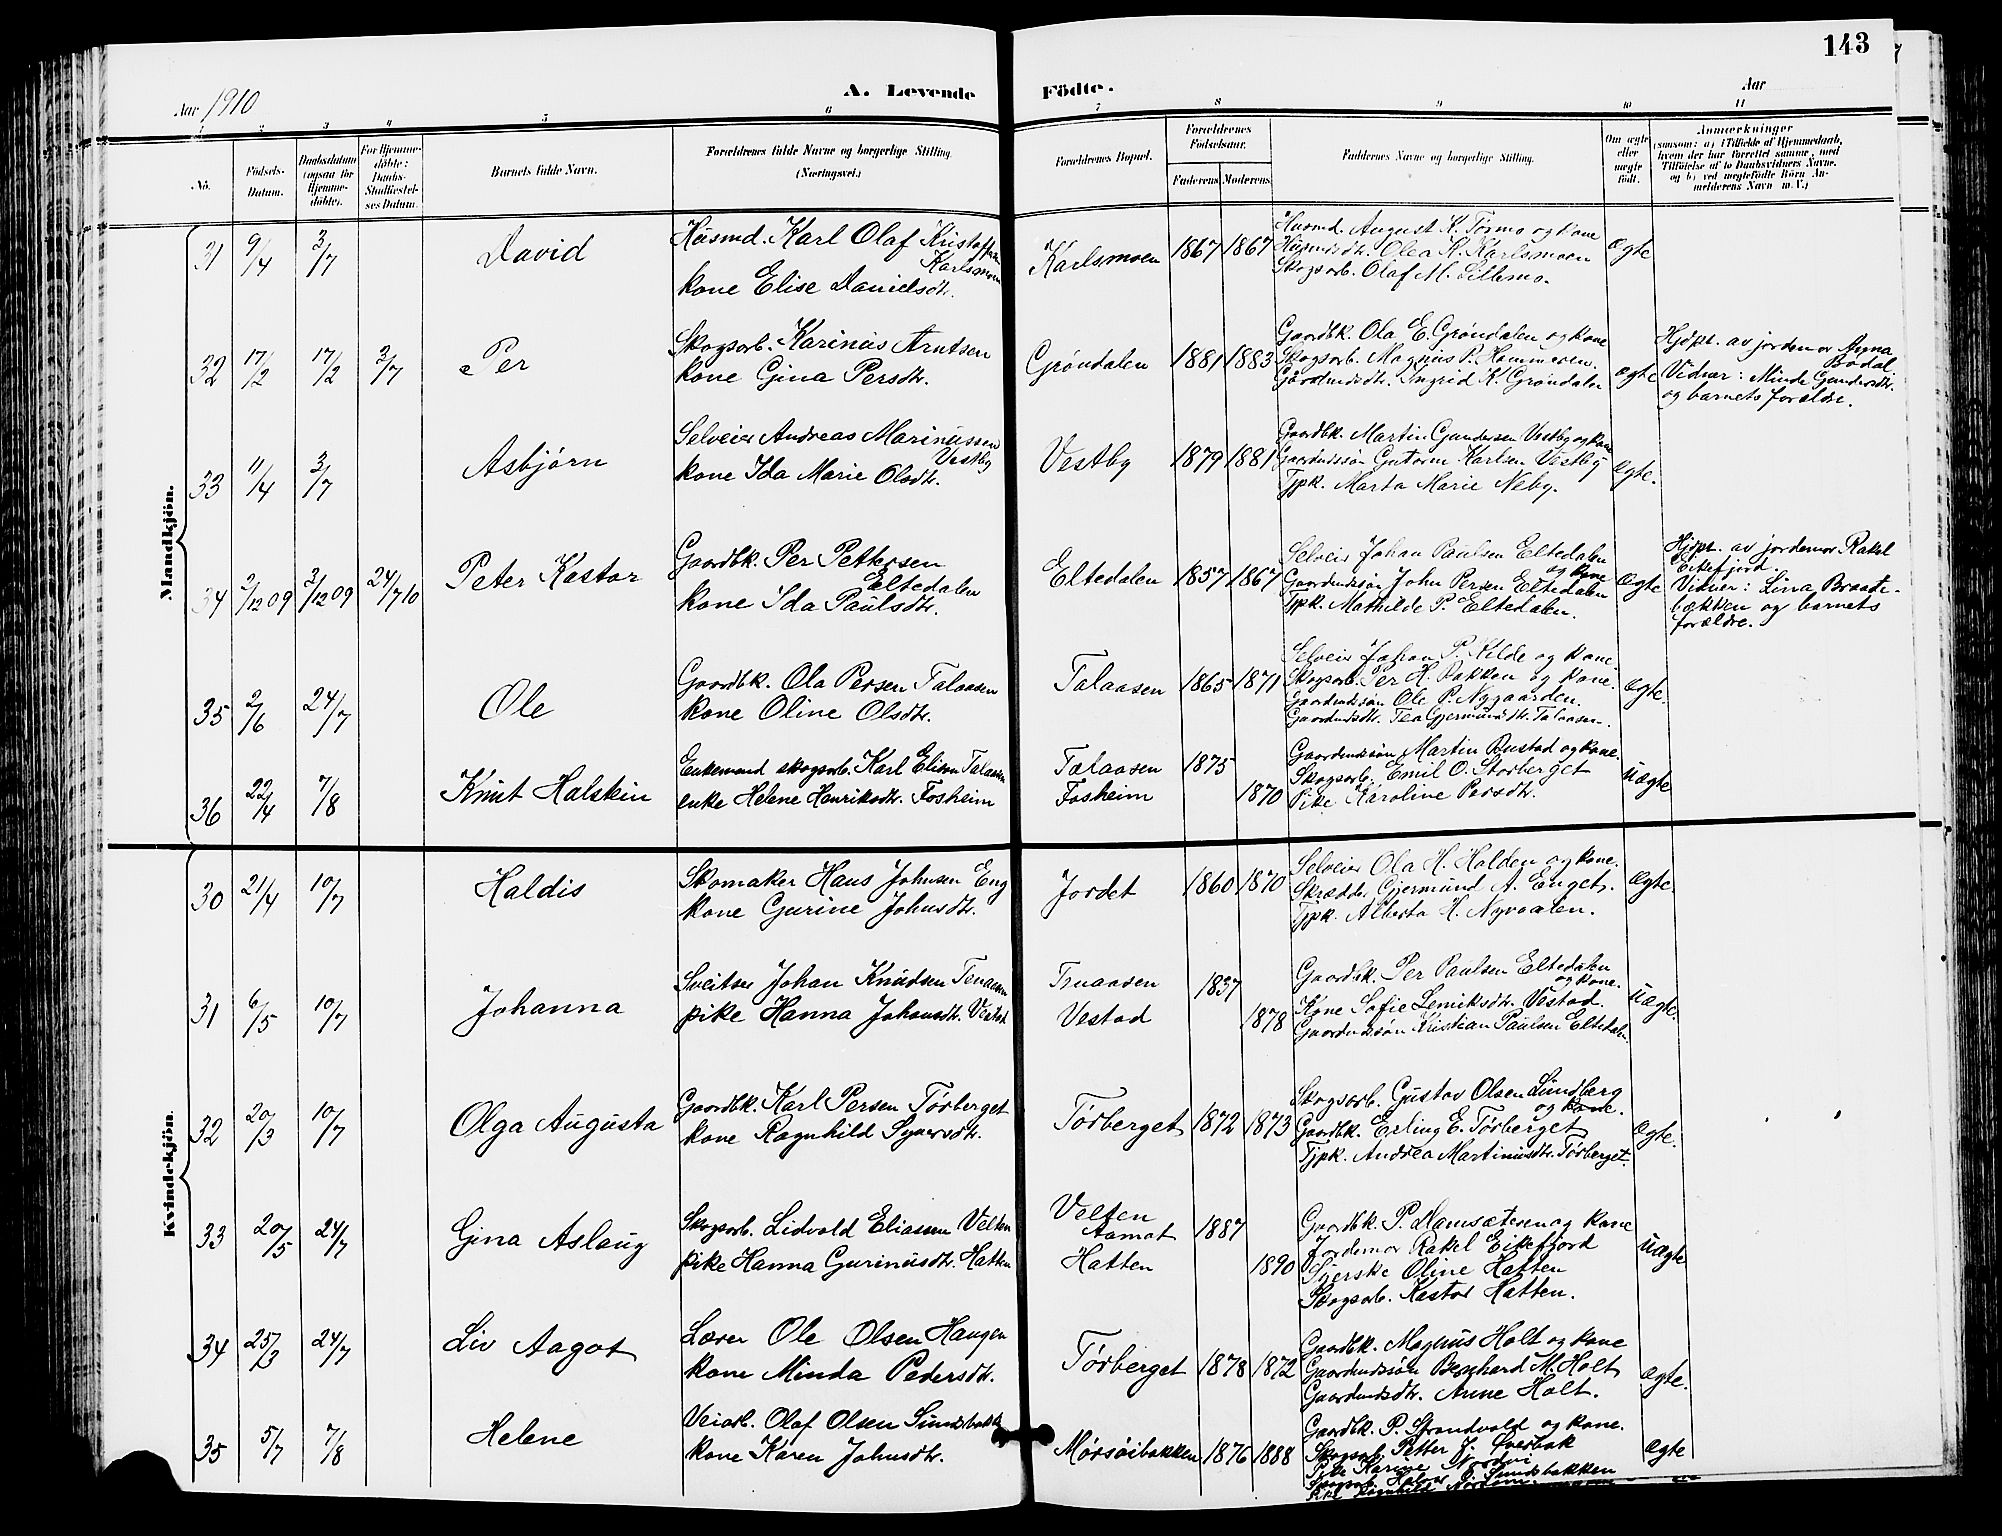 143
Aar 1910
A. Levende Födte.
Aar
1 2 3 4 5 6 7 8 9 10 11
No.
Födsels-Datum.
Daabsdatum (ogsaa for Hjemme-döbte).
For Hjemme-döbte: Daabs-Stadfæstel-ses Datum.
Barnets fulde Navn.
Forældrenes fulde Navne og borgerlige Stilling (Næringsvei.)
Forældrenes Bopæl.
Forældrenes Födselsaar.
Faderens Moderens
Faddernes Navne og borgerlige Stilling.
Om ægte eller uægte födt.
Anmærkninger
(saasom: a) i Tilfælde af Hjemmedaab, hvem der har forrettet samme, med Tilföielse af to Daabsvidners Navne. og b) ved uægtefödte Börn An-melderens Navn m. V.)
Mandkjön.
31 9/4 3/7 David
Husmd. Karl Olaf Kristoffersen Karlsmoen
kone Elise Danielsdtr.
Karlsmoen 1867 1867
Husmd. August K. Tørmo og kone
Husmdsdtr. Olea K. Karlsmoen
Skogsarb. Olaf M. Lillemo.
ægte
32 17/2 17/2 3/7 Per
Skogsarb. Karinus Arntsen
kone Gina Persdtr.
Grøndalen 1881 1883
Gaardbk. Ola E. Grøndalen og kone
Skogsarb. Magnus P. Hammeren
Gaardmdsdtr. Ingrid K. Grøndalen
ægte
Hjdpt. av jordemor Magna Bødal.
Vidner: Minda Gundersdtr.
og barnets forældre.
33 11/4 3/7 Asbjørn
Selveier Andreas Marinussen Vestby
kone Ida Marie Olsdtr.
Vestby 1879 1881
Gaardbk. Martin Gundersen Vestby og kone
Gaardmdssøn Gutorm Karlsen Vestby
Tjpk. Marta Marie Neby.
ægte.
34 2/12 09 3/12 09 24/7 10 Peter Kastor
Gaardbk. Per Pettersen Eltedalen
kone Ida Paulsdtr.
Eltedalen 1857 1867
Selveier Johan Paulsen Eltedalen og kone
Gaardmdssøn John Persen Eltedalen
Tjpk. Mathilde P. Eltedalen.
ægte
Hjdpt. av jordemor Rakel
Eikefjord.
Vidner: Lina Braate-
bækken og barnets
forældre.
35 2/6 24/7 Ole
Gaardbk. Ola Persen Talaasen
kone Oline Olsdtr.
Talaasen 1865 1871
Selveier Johan P. Kilde og kone.
Skogsarb. Per H. Bakken og kone.
Gaardmdssøn Ole P. Nygaarden.
Gaardmdsdtr. Tea Gjermundsdtr. Talaasen.
ægte.
36 22/4 7/8 Knut Halskin
Enkemand skogsarb. Karl Elisen Talaasen
enke Helene Henriksdtr. Fosheim
Talaasen 1875
Fosheim 1870
Gaardmdssøn Martin Bustad og kone.
Skogsarb. Emil O. Storberget
Pike Karoline Persdtr.
uægte
Kvindekjön.
30 21/4 10/7 Haldis
Skomaker Hans Johnsen Eng
kone Gurine Johnsdtr.
Jordet 1860 1870
Selveier Ola H. Holden og kone.
Skrædder Gjermund A. Enget.
Tjpk. Alberta H. Nyvoolen.
ægte.
31 6/5 10/7 Johanna
Sveitser Johan Knudsen
pike Hanna Johansdtr. Vestad
1837
Vestad 1878
Gaardbk. Per Paulsen Eltedalen og kone.
Kone Sofie Vestad.
Gaardmdssøn Kristian Paulsen Eltedalen.
uægte.
32 20/3 10/7 Olga Augusta
Gaardbk. Karl Persen Tørberget
kone Ragnhild Syversdtr.
Tørberget 1872 1873
Skogsarb. Gustav Olsen Lundberg og kone.
Gaardbk. Erling E. Tørberget
Tjpk. Andrea Martinusdtr. Tørberget.
ægte.
33 20/5 24/7 Gina Aslaug
Skogsarb. Lidvald Eliassen Velten
pike Hanna Gurinusdtr. Hatten
Velten
Aamot 1887
Hatten 1890
Gaardbk. P. Damsæteren og kone
Jordemor Rakel Eikefjord
Syerske Oline Hatten
Skogsarb. Kastor Hatten.
uægte
34 25/3 24/7 Liv Aagot
Lærer Ole Olsen Haugen
kone Minda Pedersdtr.
Tørberget 1878 1872
Gaardbk. Magnus Holt og kone
Gaardmdssøn Bernhard M. Holt
Gaardmdsdtr. Anne Holt.
ægte.
35 5/7 7/8 Helene
Veiarb. Olaf Olsen Sundsbakk
kone Karen Johnsdtr.
Mørsøibakken 1876 1888
Gaardbk. P. Strandvold og kone.
Skogsarb. Petter J. Øverbak
Pike Karine
Skogsarb. Halvor E. Sundsbakken
ægte